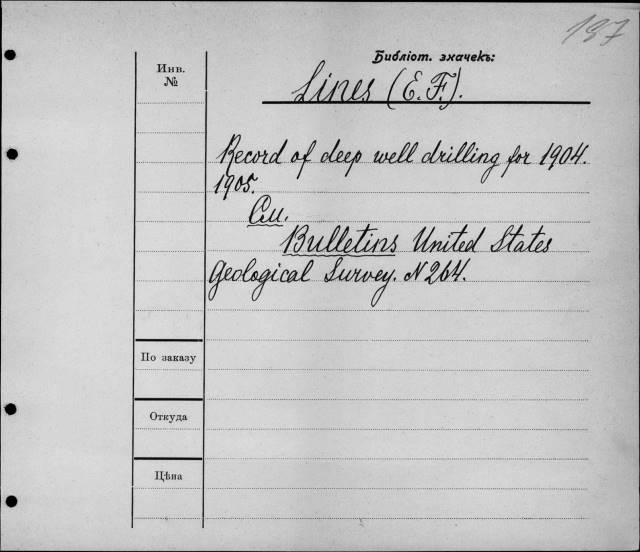 197
Библіот. значекъ:
Инв.
№
Lines (E. F.).
Record of deep well drilling for 1904.
1905.
См.
Bulletins United States
Geological Survey. N 264.
По заказу
Откуда
Цѣна